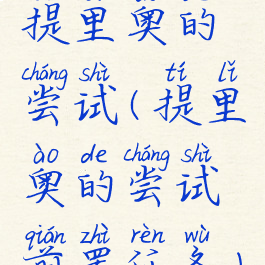 提里奥的
cháng shì tí lǐ
尝试(提里
ào de cháng shì
奥的尝试
qián zhì rèn wù
前置任务)